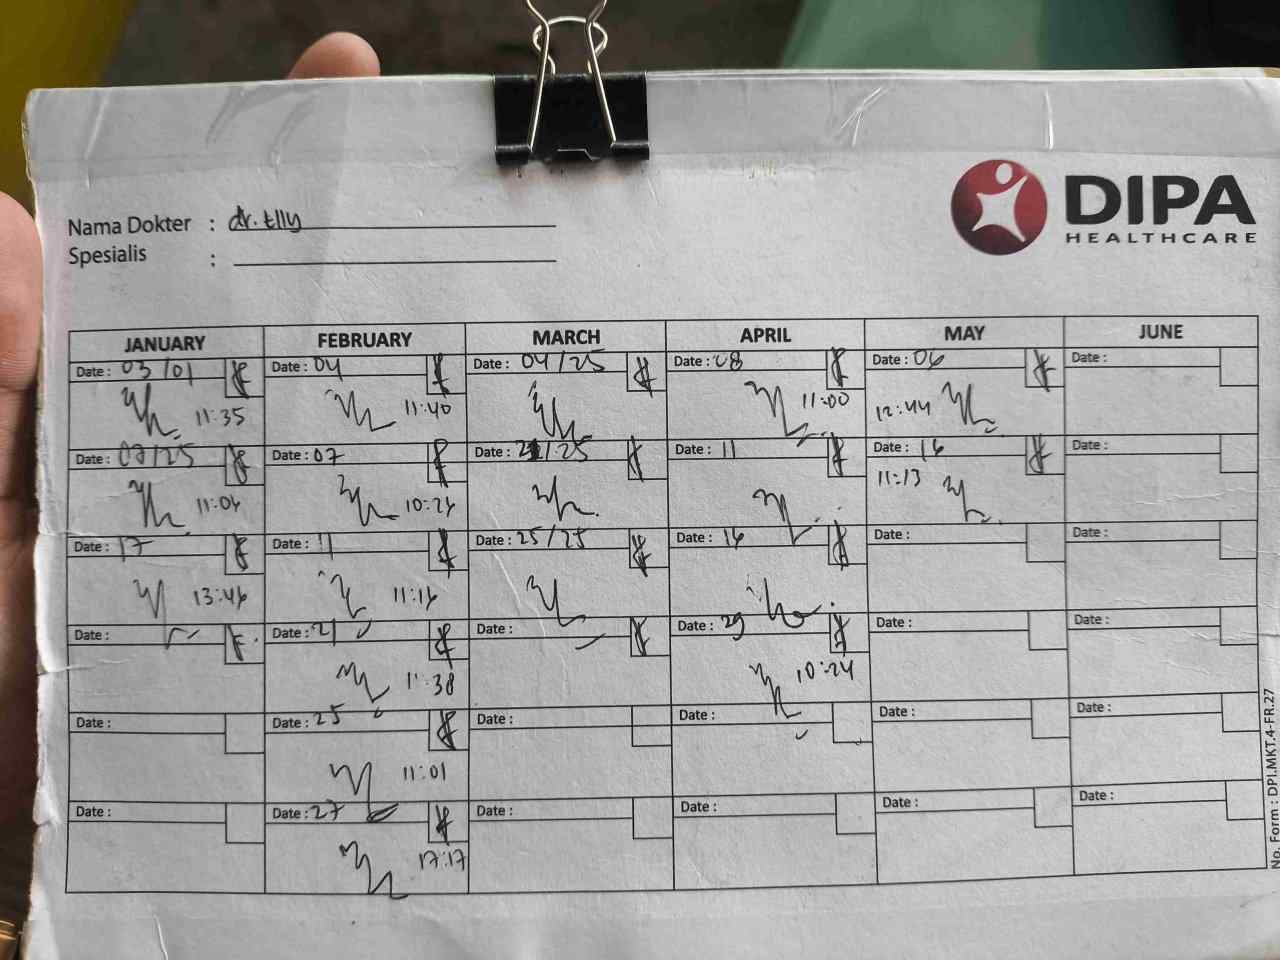 DIPA
HEALTHCARE
Nama Dokter : dr. Elly
Spesialis :
JANUARY FEBRUARY MARCH APRIL MAY JUNE
Date : 03/01 Date : 04 Date : 04/25 Date : 08 Date : 06 Date :
11:35 11:40 11:00 12:44
Date : 07/25 Date : 07 Date : /25 Date : 11 Date : 16 Date :
11:06 10:26 11:13
Date : 17 Date : 11 Date : 25/25 Date : 16 Date : Date :
13:46 11:16
Date : Date : 21 Date : Date : 29 Date : Date :
11:38 10:24
Date : Date : 25 Date : Date : Date : Date :
11:01
Date : Date : 27 Date : Date : Date : Date :
17:17
No. Form : DPI.MKT.4-FR.27